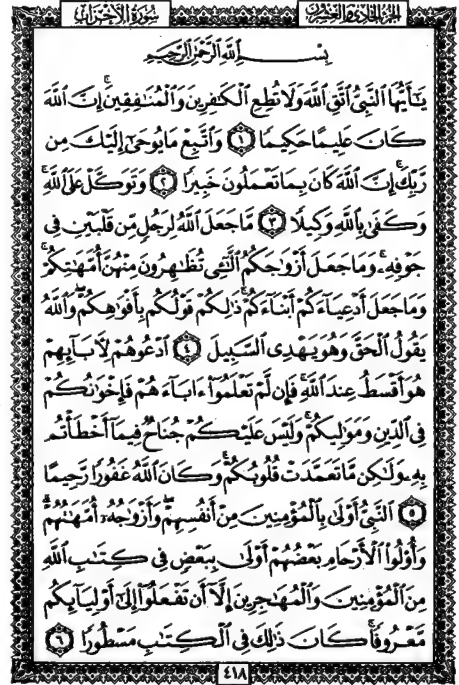 سُورَةُ الأَحْزَابِ
الجُزْءُ الحَادِي وَالعِشْرُونَ
بِسْمِ اللَّهِ الرَّحْمَٰنِ الرَّحِيمِ
يَـٰٓأَيُّهَا ٱلنَّبِىُّ ٱتَّقِ ٱللَّهَ وَلَا تُطِعِ ٱلْكَـٰفِرِينَ وَٱلْمُنَـٰفِقِينَ ۗ إِنَّ ٱللَّهَ
كَانَ عَلِيمًا حَكِيمًا ١ وَٱتَّبِعْ مَا يُوحَىٰٓ إِلَيْكَ مِن
رَّبِّكَ ۚ إِنَّ ٱللَّهَ كَانَ بِمَا تَعْمَلُونَ خَبِيرًا ٢ وَتَوَكَّلْ عَلَى ٱللَّهِ ۚ
وَكَفَىٰ بِٱللَّهِ وَكِيلًا ٣ مَّا جَعَلَ ٱللَّهُ لِرَجُلٍ مِّن قَلْبَيْنِ فِى
جَوْفِهِۦ ۚ وَمَا جَعَلَ أَزْوَٰجَكُمُ ٱلَّـٰٓـِٔى تُظَـٰهِرُونَ مِنْهُنَّ أُمَّهَـٰتِكُمْ ۚ
وَمَا جَعَلَ أَدْعِيَآءَكُمْ أَبْنَآءَكُمْ ۚ ذَٰلِكُمْ قَوْلُكُم بِأَفْوَٰهِكُمْ ۖ وَٱللَّهُ
يَقُولُ ٱلْحَقَّ وَهُوَ يَهْدِى ٱلسَّبِيلَ ٤ ٱدْعُوهُمْ لِـَٔابَآئِهِمْ
هُوَ أَقْسَطُ عِندَ ٱللَّهِ ۚ فَإِن لَّمْ تَعْلَمُوٓا۟ ءَابَآءَهُمْ فَإِخْوَٰنُكُمْ
فِى ٱلدِّينِ وَمَوَٰلِيكُمْ ۚ وَلَيْسَ عَلَيْكُمْ جُنَاحٌ فِيمَآ أَخْطَأْتُم
بِهِۦ وَلَـٰكِن مَّا تَعَمَّدَتْ قُلُوبُكُمْ ۚ وَكَانَ ٱللَّهُ غَفُورًا رَّحِيمًا
٥ ٱلنَّبِىُّ أَوْلَىٰ بِٱلْمُؤْمِنِينَ مِنْ أَنفُسِهِمْ ۖ وَأَزْوَٰجُهُۥٓ أُمَّهَـٰتُهُمْ ۗ
وَأُو۟لُوا۟ ٱلْأَرْحَامِ بَعْضُهُمْ أَوْلَىٰ بِبَعْضٍ فِى كِتَـٰبِ ٱللَّهِ
مِنَ ٱلْمُؤْمِنِينَ وَٱلْمُهَـٰجِرِينَ إِلَّآ أَن تَفْعَلُوٓا۟ إِلَىٰٓ أَوْلِيَآئِكُم
مَّعْرُوفًا ۚ كَانَ ذَٰلِكَ فِى ٱلْكِتَـٰبِ مَسْطُورًا ٦
٤١٨